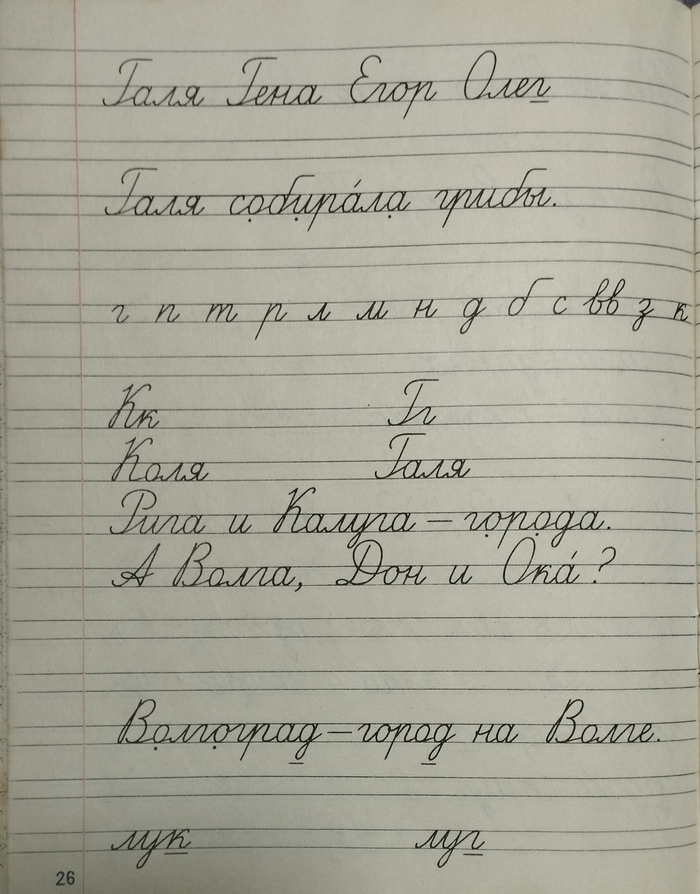 Галя Гена Егор Олег
Галя собира́ла грибы.
г п т р л м н д б с вв з к
Кк Гг
Коля Галя
Рига и Калуга – города.
А Волга, Дон и Ока́?
Волгоград – город на Волге.
лук луг
26